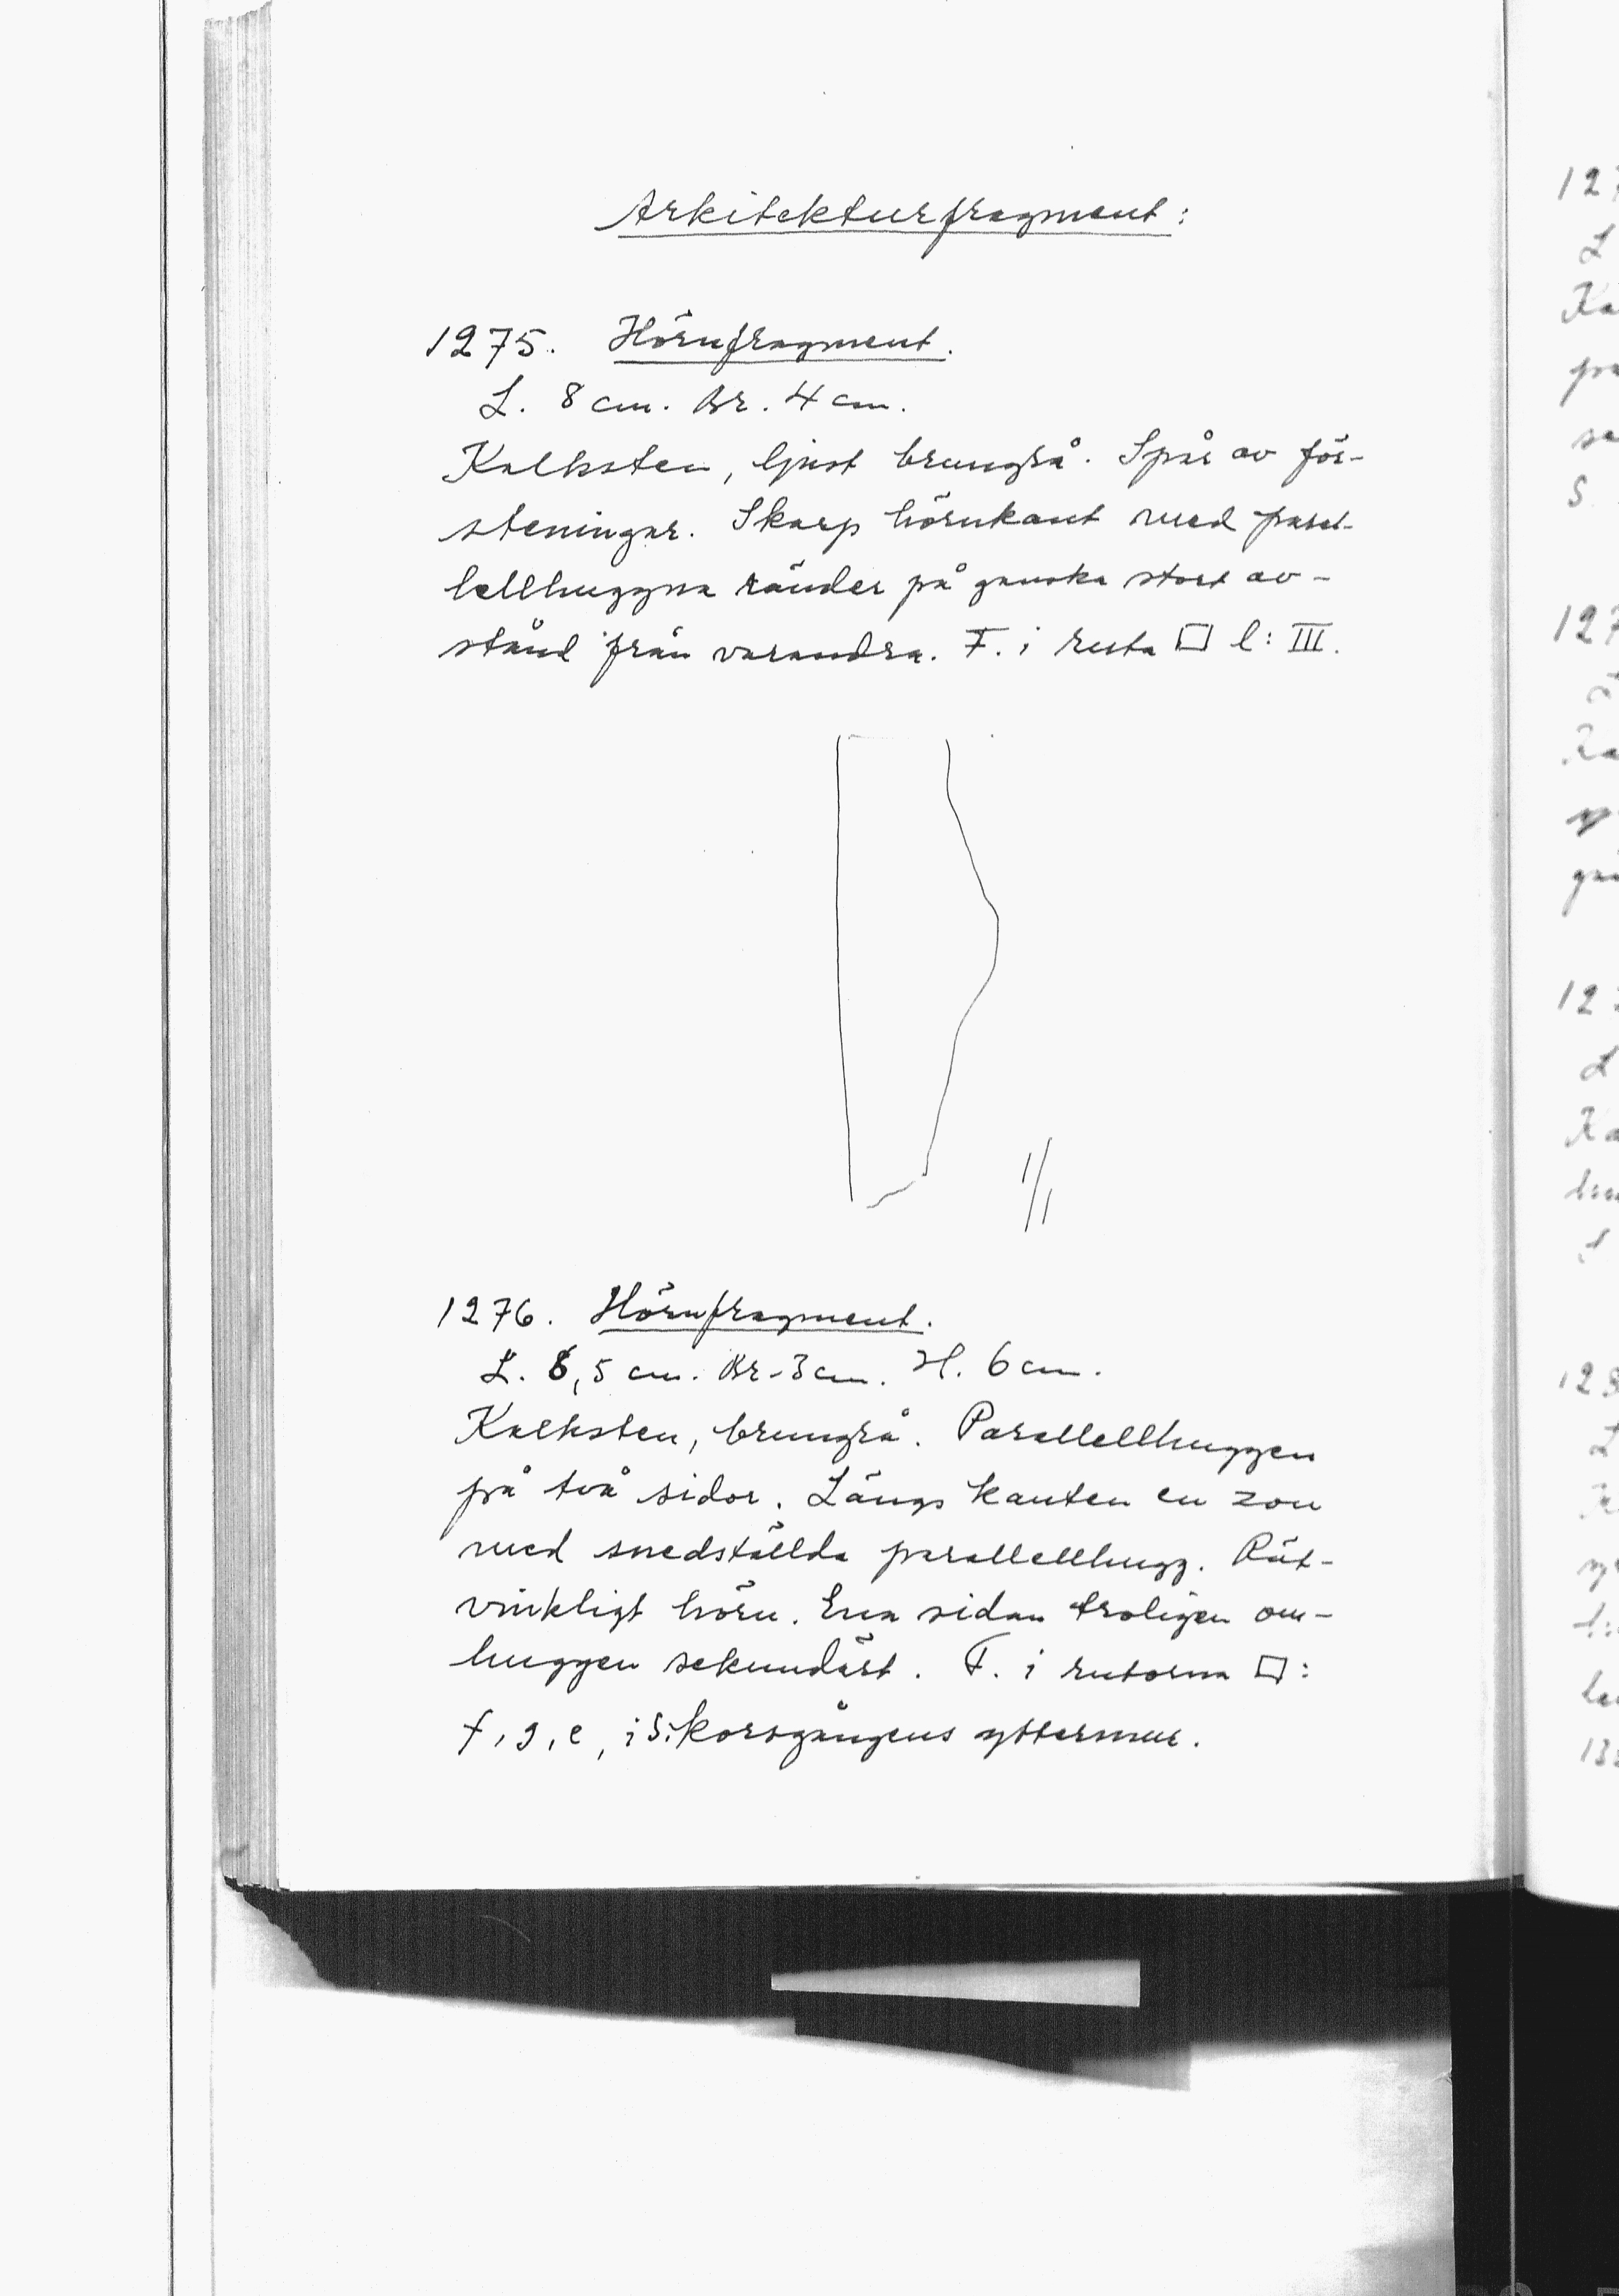 Arkitekturfragment:
1275. Hörnfragment.
L. 8 cm. Br. 4 cm.
Kalksten, ljust brungrå. Spår av för-
steningar. Skarp hörnkant med paral-
lellhuggna ränder på ganska stort av-
stånd från varandra. F. i ruta □ l: III.
1/1
1276. Hörnfragment.
L. 8,5 cm. Br. 3 cm. H. 6 cm.
Kalksten, brungrå. Parallellhuggen
på två sidor. Längs kanten en zon
med snedställda parallellhugg. Rät-
vinkligt hörn. Ena sidan troligen om-
huggen sekundärt. F. i rutorna □:
f, g, e, i S: korsgångens yttermur.
127
L
Ka
S.
127
Ka
127
L
Ka
128
L